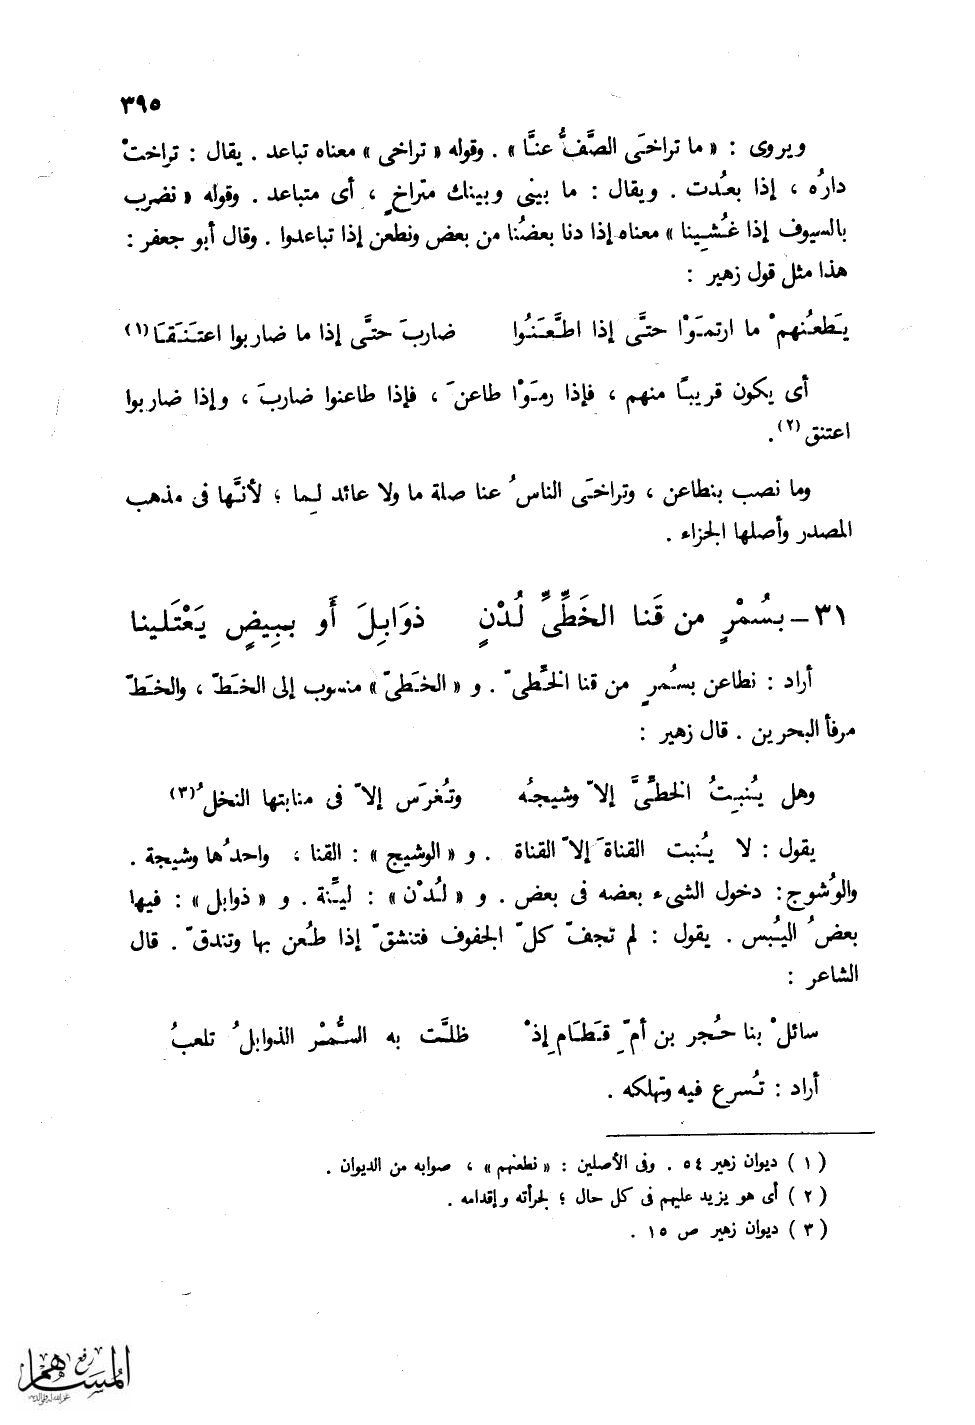 ٣٩٥
ويروى : « ما تراخَى الصَّفُّ عنَّا » . وقوله « تراخى » معناه تباعد . يقال : تراختْ
دارُه ، إذا بعُدت . ويقال : ما بينى وبينك متراخٍ ، أى متباعد . وقوله « نضرب
بالسيوف إذا غُشِينا » معناه إذا دنا بعضُنا من بعض ونطعن إذا تباعدوا . وقال أبو جعفر :
هذا مثل قول زهير :
يَطعُنهمْ ما ارتمَوْا حتَّى إذا اطَّعَنُوا ضاربَ حتَّى إذا ما ضاربوا اعتَنَقَا (١)
أى يكون قريبًا منهم ، فإذا رمَوْا طاعنَ ، فإذا طاعنوا ضاربَ ، وإذا ضاربوا
اعتنق (٢).
وما نصب بنطاعن ، وتراخَى الناسُ عنا صلة ما ولا عائد لِما ؛ لأنَّها فى مذهب
المصدر وأصلها الجزاء .
٣١ – بسُمْرٍ من قَنا الخَطِّىِّ لُدْنٍ ذوَابِلَ أَو ببِيضٍ يَعْتَلينا
أراد : نطاعن بسُمرٍ من قنا الخَطِّىّ . و « الخَطىّ » منسوب إلى الخَطّ ، والخَطّ
مرفأ البحرين . قال زهير :
وهل يُنبِتُ الخطِّىَّ إلاّ وشيجُه وتُغرَس إلاّ فى منابتها النخلُ (٣)
يقول : لا يُنبت القناةَ إلاّ القناة . و « الوشيج » : القنا ، واحدُها وشيجة .
والوُشوج : دخول الشىء بعضه فى بعض . و « لُدْن » : ليِّنة . و « ذوابل » : فيها
بعضُ اليُبس . يقول : لم تجفّ كلّ الجفوف فتنشقّ إذا طُعن بها وتندقّ . قال
الشاعر :
سائلْ بنا حُجر بن أمّ قَطَامِ إذْ ظلَّت به السُّمْر الذوابلُ تلعبُ
أراد : تُسرع فيه وتهلكه .
( ١ ) ديوان زهير ٥٤ . وفى الأصلين : « نطعنهم » ، صوابه من الديوان .
( ٢ ) أى هو يزيد عليهم فى كل حال ؛ لجرأته وإقدامه .
( ٣ ) ديوان زهير ص ١٥ .
رفع
المساهم